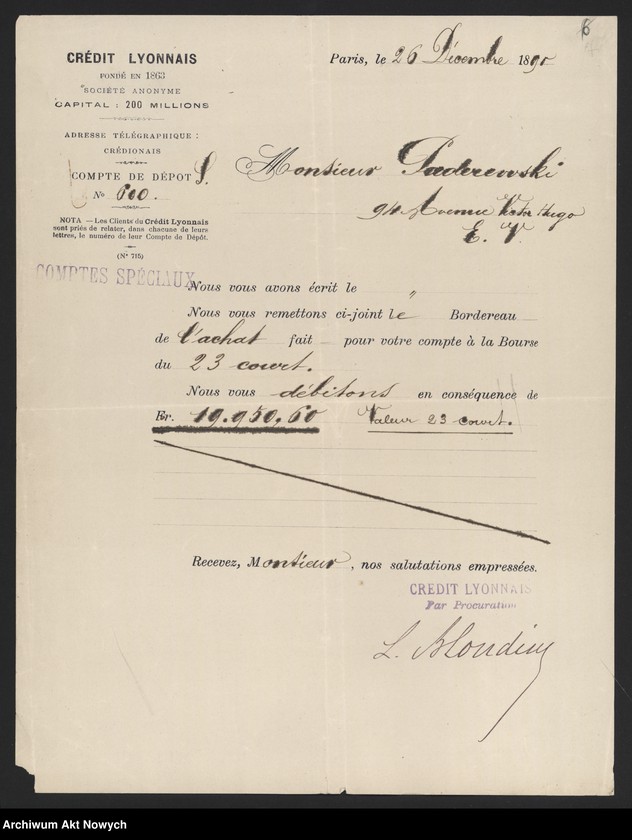 6
CRÉDIT LYONNAIS
FONDÉ EN 1863
SOCIÉTÉ ANONYME
CAPITAL : 200 MILLIONS
ADRESSE TÉLÉGRAPHIQUE :
CRÉDIONAIS
COMPTE DE DÉPOT S.
No 600.
NOTA — Les Clients du Crédit Lyonnais
sont priés de relater, dans chacune de leurs
lettres, le numéro de leur Compte de Dépôt.
(No 715)
COMPTES SPÉCIAUX
Paris, le 26 Décembre 1890
Monsieur Paderewski
94 Avenue Victor Hugo
E. V.
Nous vous avons écrit le "
Nous vous remettons ci-joint le Bordereau
de l'achat fait pour votre compte à la Bourse
du 23 court.
Nous vous débitons en conséquence de
Fr. 19.950,60 Valeur 23 court.
Recevez, Monsieur, nos salutations empressées.
CREDIT LYONNAIS
Par Procuration
L. Blondin
Archiwum Akt Nowych